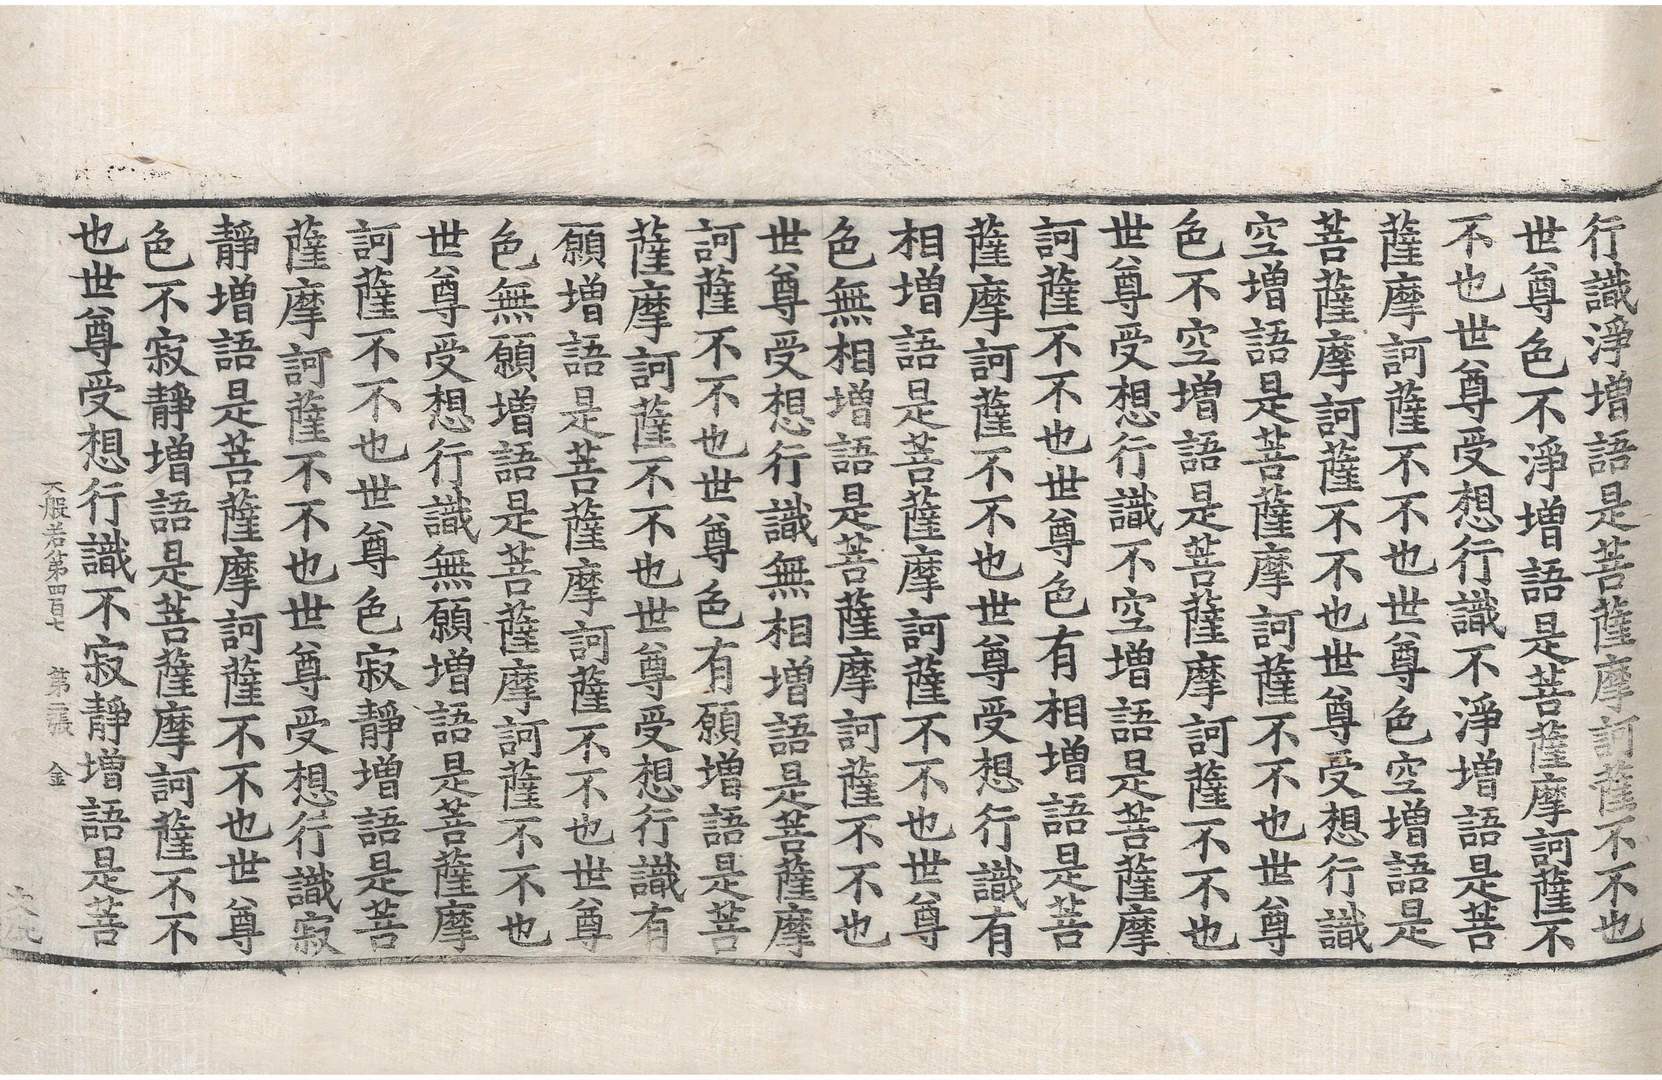 行識淨增語是菩薩摩訶薩不不也
世尊色不淨增語是菩薩摩訶薩不
不也世尊受想行識不淨增語是菩
薩摩訶薩不不也世尊色空增語是
菩薩摩訶薩不不也世尊受想行識
空增語是菩薩摩訶薩不不也世尊
色不空增語是菩薩摩訶薩不不也
世尊受想行識不空增語是菩薩摩
訶薩不不也世尊色有相增語是菩
薩摩訶薩不不也世尊受想行識有
相增語是菩薩摩訶薩不不也世尊
色無相增語是菩薩摩訶薩不不也
世尊受想行識無相增語是菩薩摩
訶薩不不也世尊色有願增語是菩
薩摩訶薩不不也世尊受想行識有
願增語是菩薩摩訶薩不不也世尊
色無願增語是菩薩摩訶薩不不也
世尊受想行識無願增語是菩薩摩
訶薩不不也世尊色寂靜增語是菩
薩摩訶薩不不也世尊受想行識寂
靜增語是菩薩摩訶薩不不也世尊
色不寂靜增語是菩薩摩訶薩不不
也世尊受想行識不寂靜增語是菩
大般若第四百七 第二張 金